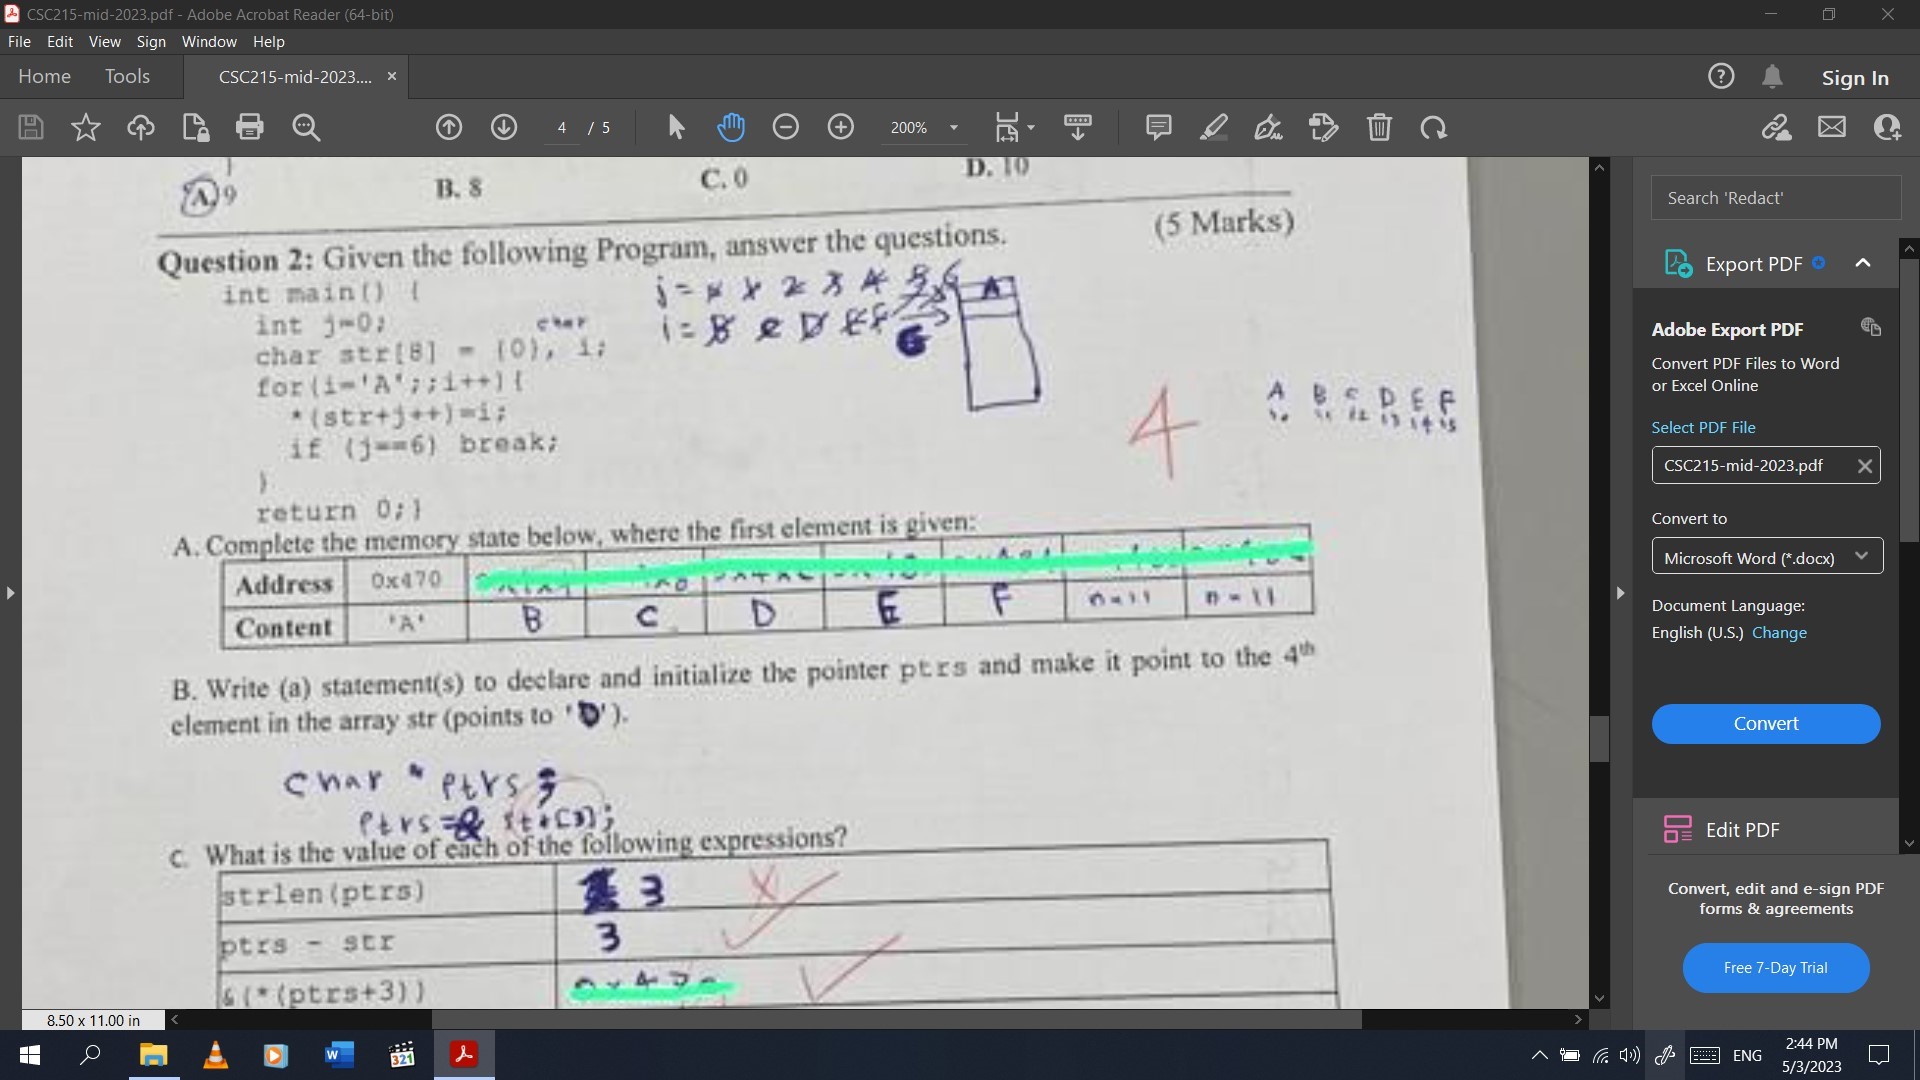 CSC215-mid-2023.pdf - Adobe Acrobat Reader (64-bit)
File Edit View Sign Window Help
Home Tools CSC215-mid-2023.... × Sign In
4 / 5 200%
A. 9 B. 8 C. 0 D. 10
(5 Marks)
Question 2: Given the following Program, answer the questions.
int main() {
int j=0;
char
char str[8] = {0}, i;
for(i='A';;i++){
*(str+j++)=i;
if (j==6) break;
}
return 0;}
A
4
A B C D E F
A. Complete the memory state below, where the first element is given:
Address 0x470
Content 'A' B C D E F n=11 n=11
B. Write (a) statement(s) to declare and initialize the pointer ptrs and make it point to the 4th
element in the array str (points to 'D').
char * ptrs ;
ptrs = & str[3];
C. What is the value of each of the following expressions?
strlen(ptrs) 3
ptrs - str 3
&(*(ptrs+3))
8.50 x 11.00 in
Search 'Redact'
Export PDF
Adobe Export PDF
Convert PDF Files to Word
or Excel Online
Select PDF File
CSC215-mid-2023.pdf
Convert to
Microsoft Word (*.docx)
Document Language:
English (U.S.) Change
Convert
Edit PDF
Convert, edit and e-sign PDF
forms & agreements
Free 7-Day Trial
321
ENG
2:44 PM
5/3/2023